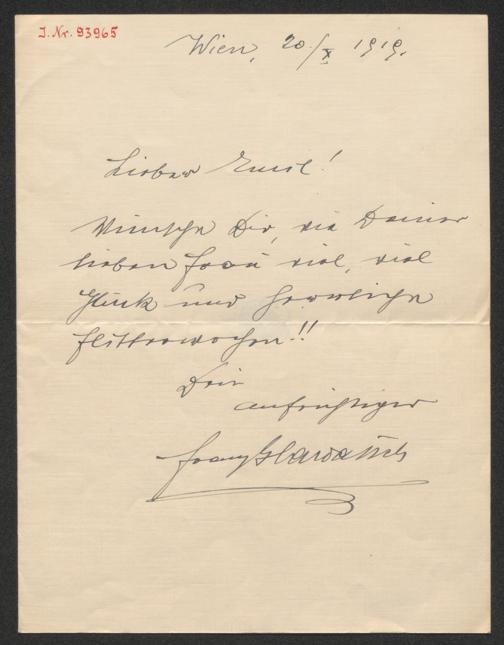 I. Nr. 93965
Wien, 20./X 1919.
Lieber Emil!
Wünsche Dir, wie Deiner
lieben Frau viel, viel
Glück und herrliche
Flitterwochen!!
Dein
aufrichtiger
Franz Glawatsch